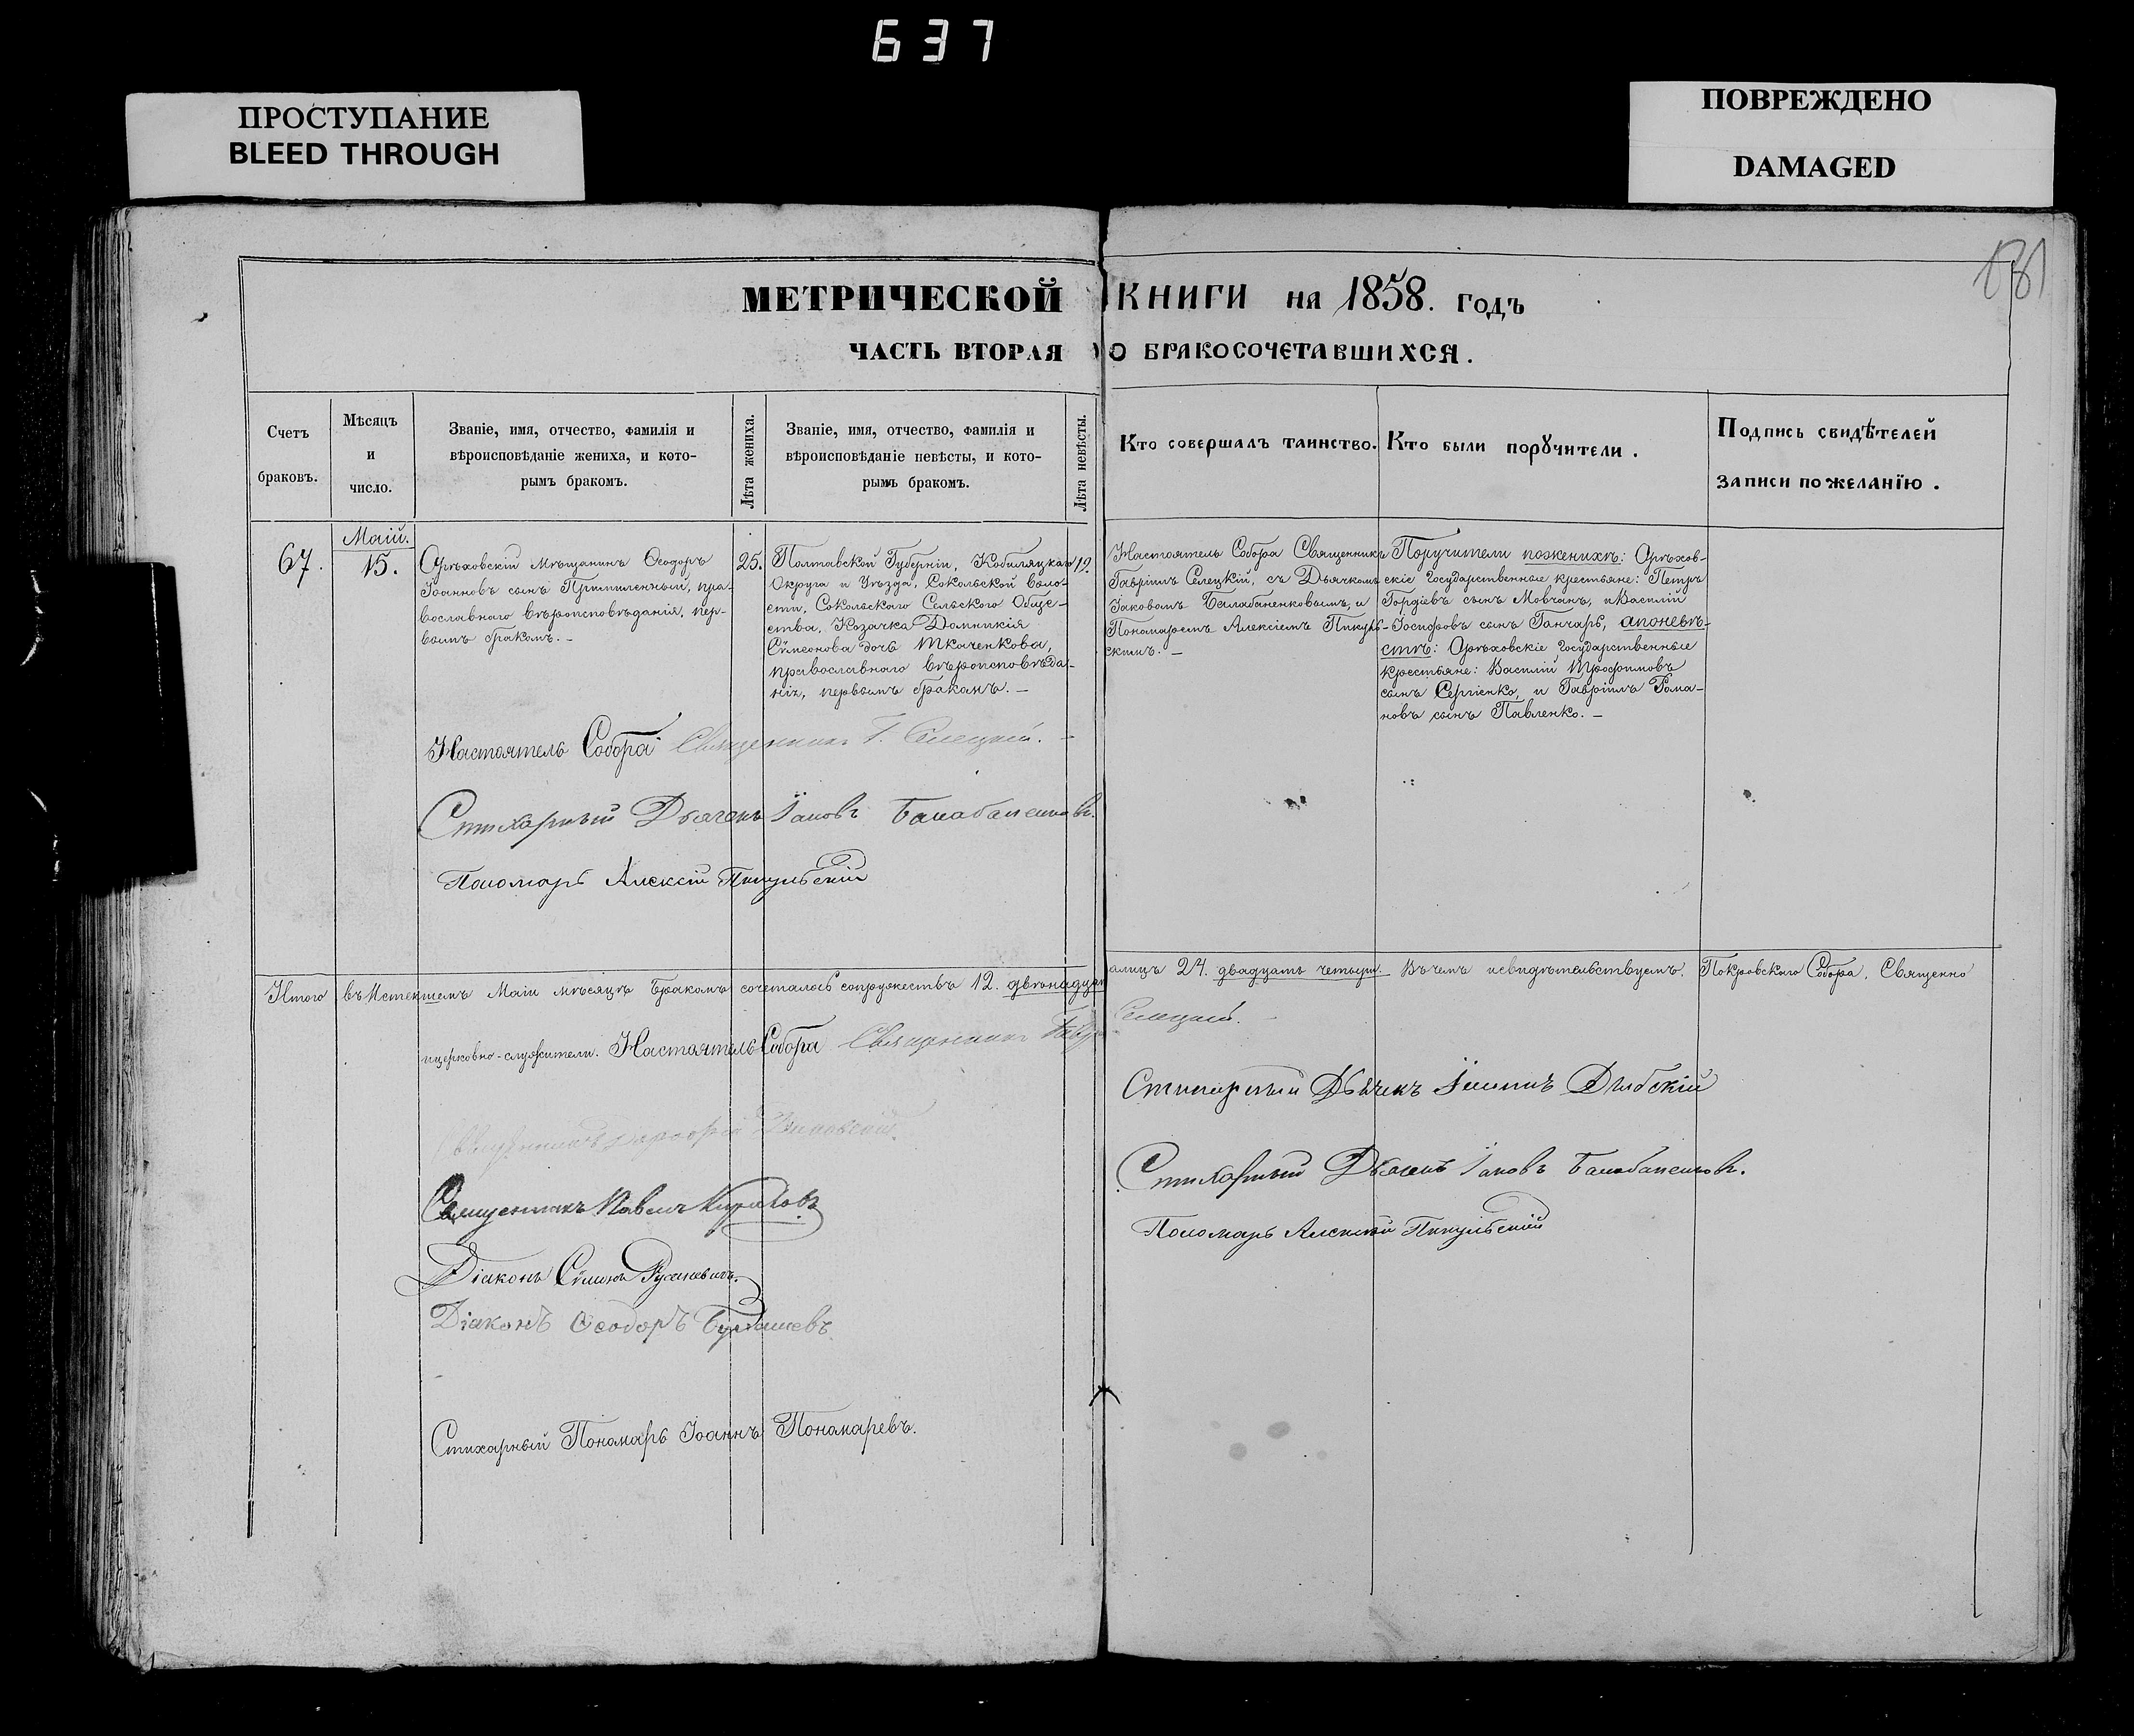 637
ПРОСТУПАНИЕ
BLEED THROUGH
ПОВРЕЖДЕНО
DAMAGED
181
МЕТРИЧЕСКОЙ КНИГИ на 1858. годъ
ЧАСТЬ ВТОРАЯ О БРАКОСОЧЕТАВШИХСЯ.
Счетъ
браковъ.
Мѣсяцъ
и
число.
Званіе, имя, отчество, фамилія и
вѣроисповѣданіе жениха, и кото-
рымъ бракомъ.
Лѣта жениха.
Званіе, имя, отчество, фамилія и
вѣроисповѣданіе невѣсты, и кото-
рымъ бракомъ.
Лѣта невѣсты.
Кто совершалъ таинство.
Кто были поручители.
Подпись свидѣтелей
записи по желанїю.
67.
Маій.
15.
Орѣховскій Мѣщанинъ Ѳеодоръ
Іоанновъ сынъ пра-
вославнаго вѣроисповѣданія, пер-
вымъ бракомъ. -
25.
Полтавской Губерніи, Кобиляцкаго
Округа и Уѣзда, Сокольской воло-
сти, Сокольскаго Сельскаго Обще-
ства, Козачка Домникія
Сѵмеонова дочь Ткаченкова,
православнаго вѣроисповѣда-
нія, первымъ бракомъ. -
19.
Настоятель Собора Священникъ
Гавріилъ Селецкій, съ Дьячкомъ
Іаковомъ Балабаненковымъ, и
Пономаремъ Алексіемъ Пикуль-
скимъ. -
Поручители поженихѣ: Орѣхов-
скіе Государственные крестьяне: Петръ
Гордіевъ сынъ Мовчанъ, и Василій
Іосифовъ сынъ Ганчаръ, апоневѣ-
стѣ: Орѣховскіе Государственные
крестьяне: Василій Трофимовъ
сынъ Сергіенко, и Гавріилъ Рома-
новъ сынъ Павленко. -
Настоятель Собора Священникъ Г. Селецкій. -
Стихарный Дьячекъ Іаковъ Балабаненковъ.
Пономарь Алексій Пикульскій
Итого въ Истекшемъ Маіи мѣсяцѣ Бракомъ сочеталось супружествъ 12. двѣнадцать
алицъ 24. двадцать четыри. Въ чемъ исвидѣтельствуемъ. Покровскаго Собора, Священно
ицерковно-служители. Настоятель Собора Священникъ Гавр
Селецкій. -
Священникъ
Священникъ Павелъ
Діаконъ Сѵмеонъ
Діаконъ Ѳеодоръ
Стихарный Пономарь Іоаннъ Пономаревъ.
Стихарный Дьячекъ
Стихарный Дьячекъ Іаковъ Балабаненковъ.
Пономарь Алексій Пикульскій